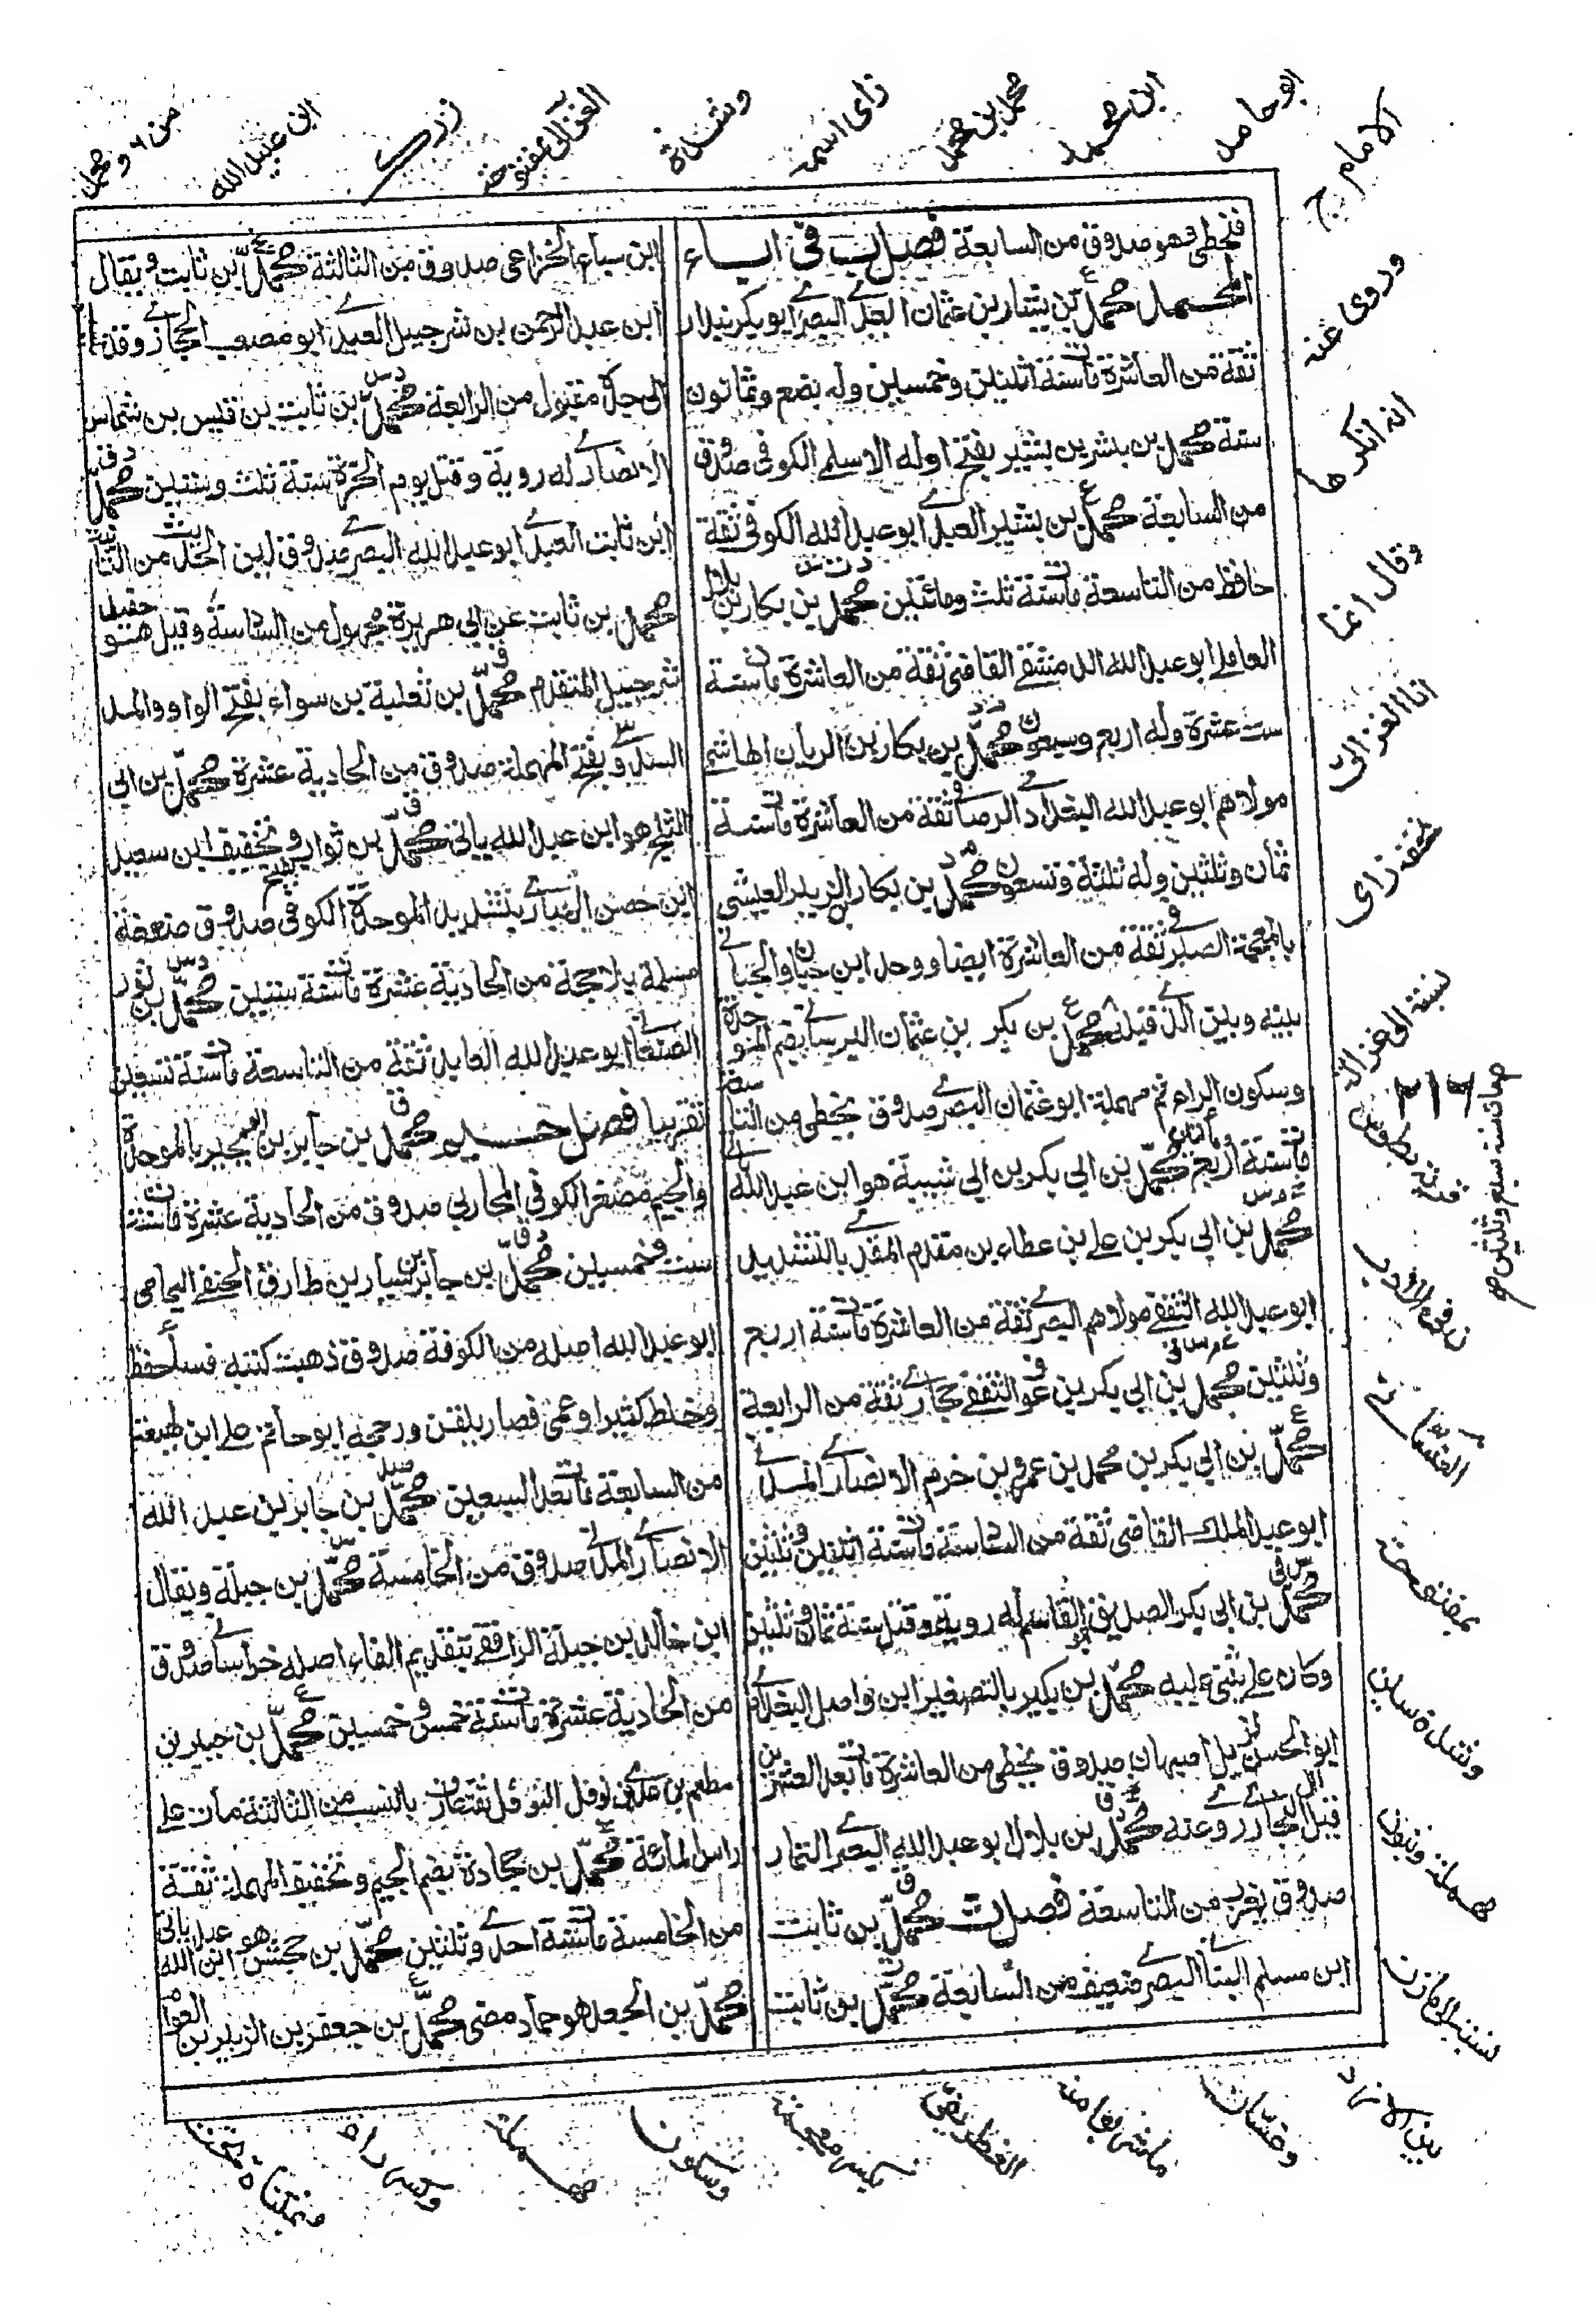 فيخطى فهو صدوق من السابعة فصل ب فى اساء
المحمدل محمد بن بشار بن عثمان العبدى البصرى ابو بكر بندار
ثقة من العاشرة مات سنة اثنتين وخمسين وله بضع وثمانون
ستة محمد بن بشر بن بشير بفتح اوله الاسلمى الكوفى صدوق
من السابعة محمد بن بشر العبدى ابو عبد الله الكوفى ثقة
حافظ من التاسعة مات سنة ثلث ومائتين محمد بن بكار بن بلال
العاملى ابو عبد الله الدمشقى القاضى ثقة من العاشرة مات سنة
ست عشرة وله اربع وسبعون محمد بن بكار بن الريان الهاشمى
مولاهم ابو عبد الله البغدادى الرصافى ثقة من العاشرة مات سنة
ثمان وثلثين وله ثلثة وتسعون محمد بن بكار بن الزبير العيشى
بالمعجمة الصيرفى ثقة من العاشرة ايضا ووحد ابن حبان والجيانى
بينه وبين الذى قبله محمد بن بكر بن عثمان البرسانى بضم الموحدة
وسكون الراء ثم مهملة ابو عثمان البصرى صدوق يخطى من التاسعة
مات سنة اربع ومائتين محمد بن ابى بكر بن ابى شيبة هو ابن عبد الله
محمد بن ابى بكر بن على بن عطاء بن مقدم المقدمى بالتشديد
ابو عبد الله الثقفى مولاهم البصرى ثقة من العاشرة مات سنة اربع
وثلثين محمد بن ابى بكر بن عوف الثقفى حجازى ثقة من الرابعة
محمد بن ابى بكر بن محمد بن عمرو بن حزم الانصارى المدنى
ابو عبد الملك القاضى ثقة من السادسة مات سنة اثنتين وثلثين
محمد بن ابى بكر الصديق ابو القاسم له روية وقتل سنة ثمان وثلثين
وكان على يثنى عليه محمد بن بكير بالتصغير ابن واصل البغدادى
ابو الحسين نزيل اصبهان صدوق يخطى من العاشرة مات بعد العشرين
قيل البخارى روى عنه محمد بن بلال ابو عبد الله البصرى التمار
صدوق يغرب من التاسعة فصل ث محمد بن ثابت
ابن مسلم البنانى البصرى ضعيف من السابعة محمد بن ثابت
ابن سباع الخزاعى صدوق من الثالثة محمد بن ثابت ويقال
ابن عبد الرحمن بن شرحبيل العبدرى ابو مصعب الحجازى وقد ينسب
الى جده مقبول من الرابعة محمد بن ثابت بن قيس بن شماس
الانصارى له روية وقتل يوم الحرة سنة ثلث وستين محمد
ابن ثابت العبدى ابو عبد الله البصرى صدوق لين الحديث من الثامنة
محمد بن ثابت عن ابى هريرة مجهول من السادسة وقيل هو حفيد
شرحبيل المتقدم محمد بن ثعلبة بن سواء بفتح الواو والمد
السدوسى بفتح المهملة صدوق من الحادية عشرة محمد بن ابى
الثلج هو ابن عبد الله ياتى محمد بن ثواب بفتح وتخفيف ابن سعيد
ابن حصن الهبارى بتشديد الموحدة الكوفى صدوق ضعفه
مسلمة بلا حجة من الحادية عشرة مات سنة ستين محمد بن ثور
الصنعانى ابو عبد الله العابد ثقة من التاسعة مات سنة تسعين
تقريبا فصل ج محمد بن جابر بن بجير بالموحدة
والجيم مصغر الكوفى المحاربى صدوق من الحادية عشرة مات سنة
ست وخمسين محمد بن جابر بن سيار بن طارق الحنفى اليمامى
ابو عبد الله اصله من الكوفة صدوق ذهبت كتبه فساء حفظه
وخلط كثيرا وعمى فصار يلقن ورجحه ابو حاتم على ابن لهيعة
من السابعة مات بعد السبعين محمد بن جابر بن عبد الله
الانصارى المدنى صدوق من الخامسة محمد بن جبلة ويقال
ابن خالد بن جبلة الرافقى بتقديم الفاء اصله خراسانى صدوق
من الحادية عشرة مات سنة خمس وخمسين محمد بن جبير بن
مطعم بن عدى بن نوفل النوفلى ثقة عارف بالنسب من الثالثة مات على
راس المائة محمد بن جحادة بضم الجيم وتخفيف المهملة ثقة
من الخامسة مات سنة احدى وثلثين محمد بن جحش هو ابن عبد الله ياتى
محمد بن الجعد هو حماد مضى محمد بن جعفر بن الزبير بن العوام
الامام ج
ابو حامد
ابن محمد
محمد بن محمد
زاى اسم
وشدة
الغزالى بمفتوحة
ابن عبيد الله
وروى عنه
انه انكرها
وقال انما
انا الغزالى
بخفة زاى
نسبة الى غزالة
قرية بطوس
٢١٦
مات سنة سبع وثلثين
الغسانى
بمفتوحة
وشدة سين
مهملة ونون
نسبة الى مازن
بين الازد